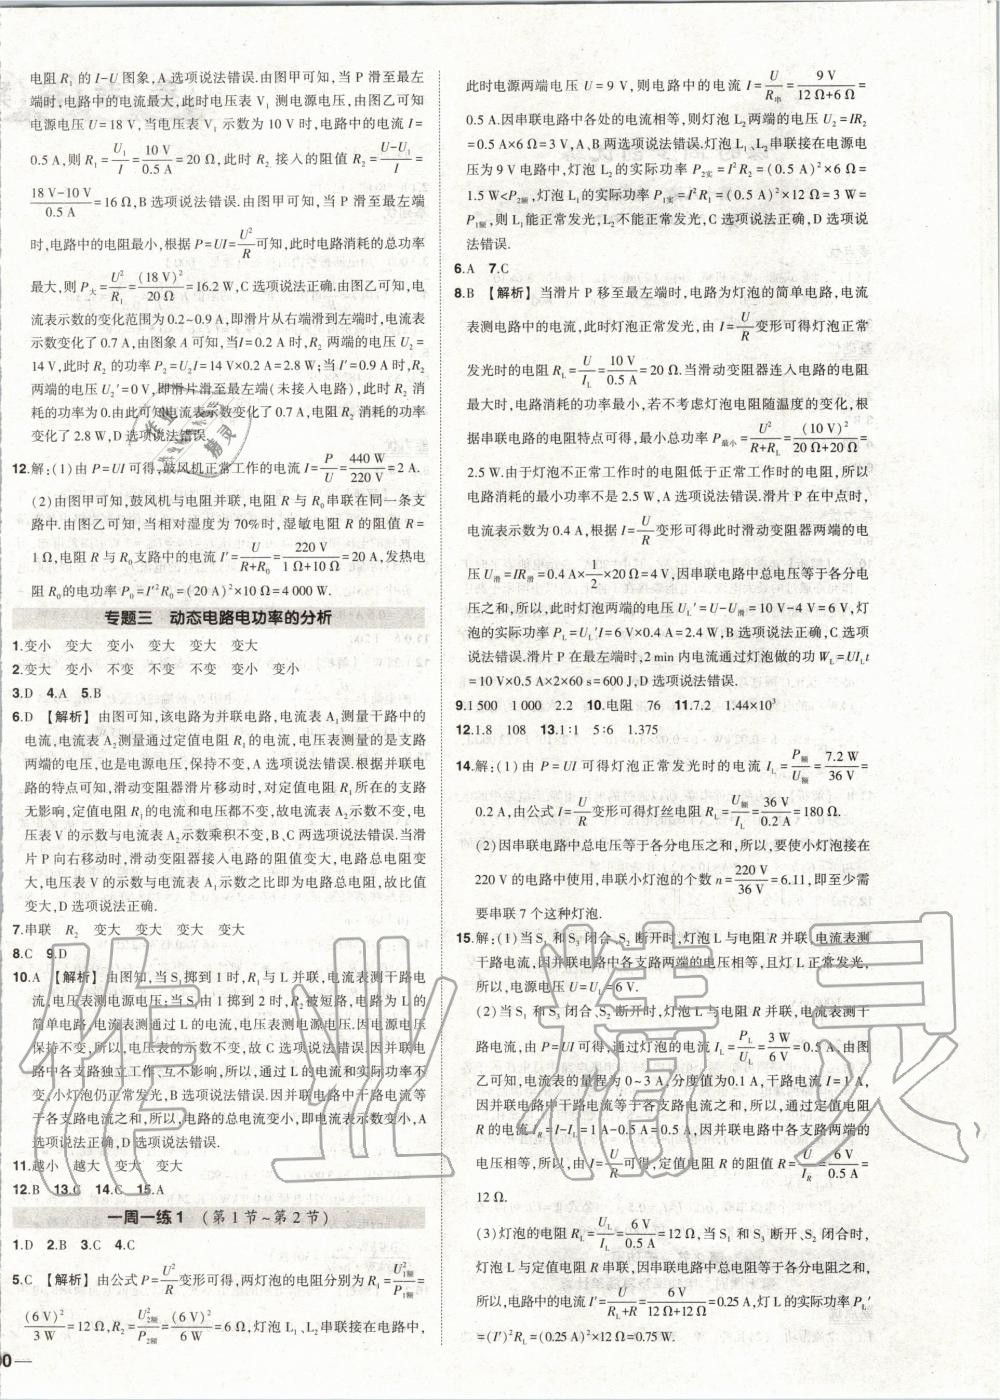 电阻 R₁ 的 I-U 图象,A 选项说法错误.由图甲可知,当 P 滑至最左
端时,电路中的电流最大,此时电压表 V₁ 测电源电压,由图乙可知
电源电压 U=18 V,当电压表 V₁ 示数为 10 V 时,电路中的电流 I=
0.5 A,则 R₁=U₁/I=10 V/0.5 A=20 Ω,此时 R₂ 接入的阻值 R₂=(U-U₁)/I=
(18 V-10 V)/0.5 A=16 Ω,B 选项说法错误.由图甲可知,当 P 滑至最左端
时,电路中的电阻最小,根据 P=UI=U²/R可知,此时电路消耗的总功率
最大,则 P大=U²/R₁=(18 V)²/20 Ω=16.2 W,C 选项说法正确.由图乙可知,电
流表示数的变化范围为 0.2~0.9 A,即滑片从右端滑到左端时,电流
表示数变化了 0.7 A,由图象 A 可知,当 I=0.2 A 时,R₂ 两端的电压 U₂=
14 V,此时 R₂ 的功率 P=U₂I=14 V×0.2 A=2.8 W;当 I′=0.9 A 时,R₂
两端的电压 U₂′=0 V,即滑片滑至最左端(未接入电路),此时 R₂ 消
耗的功率为 0.由此可知电流表示数变化了 0.7 A,电阻 R₂ 消耗的功率
变化了 2.8 W,D 选项说法错误.
12.解:(1)由 P=UI 可得,鼓风机正常工作的电流 I=P/U=440 W/220 V=2 A.
(2)由图甲可知,鼓风机与电阻并联,电阻 R 与 R₀ 串联在同一条支
路中.由图乙可知,当相对湿度为 70%时,湿敏电阻 R 的阻值 R=
1 Ω,电阻 R 与 R₀支路中的电流 I′=U/(R+R₀)=220 V/(1 Ω+10 Ω)=20 A,发热电
阻 R₀的电功率 P₀=I′²R₀=(20 A)²×10 Ω=4 000 W.
专题三 动态电路电功率的分析
1.变小 变大 变小 变大 变大 变大
2.变大 变小 不变 变大 不变 变小 变小
3.D 4.A 5.B
6.D 【解析】由图可知,该电路为并联电路,电流表 A₁测量干路中的
电流,电流表 A₂测量通过定值电阻 R₁的电流,电压表测量的是支路
两端的电压,也是电源电压,保持不变,A 选项说法错误.根据并联电
路的特点可知,滑动变阻器滑片移动时,对定值电阻 R₁所在的支路
无影响,定值电阻 R₁的电流和电压都不变,故电流表 A₂示数不变,电
压表 V 的示数与电流表 A₂示数乘积不变,B、C 两选项说法错误.当滑
片 P 向右移动时,滑动变阻器接入电路的阻值变大,电路总电阻变
大,电压表 V 的示数与电流表 A₁示数之比即为电路总电阻,故比值
变大,D 选项说法正确.
7.串联 R₂ 变大 变大 变大 变大
8.C 9.D
10.A 【解析】由图知,当 S₁掷到 1 时,R₁与 L 并联,电流表测干路电
流,电压表测电源电压;当 S₁由 1 掷到 2 时,R₁被短路,电路为 L 的
简单电路,电流表测通过 L 的电流,电压表测电源电压.因电源电压
保持不变,所以,电压表的示数不变,故 C 选项说法错误.因并联电路
中各支路独立工作、互不影响,所以,通过 L 的电流和实际功率不
变,小灯泡仍正常发光,B 选项说法错误.因并联电路中干路电流等
于各支路电流之和,所以,电路的总电流变小,即电流表示数变小,A
选项说法正确,D 选项说法错误.
11.越小 越大 变大 变大
12.B 13.C 14.C 15.A
一周一练 1 (第 1 节~第 2 节)
1.D 2.B 3.C 4.C
5.C 【解析】由公式 P=U²/R变形可得,两灯泡的电阻分别为 R₁=U²₁额/P₁额=
(6 V)²/3 W=12 Ω,R₂=U²₂额/P₂额=(6 V)²/6 W=6 Ω,灯泡 L₁、L₂串联接在电路中,
此时电源两端电压 U=9 V,则电路中的电流 I=U/R串=9 V/(12 Ω+6 Ω)=
0.5 A.因串联电路中各处的电流相等,则灯泡 L₂两端的电压 U₂=IR₂
=0.5 A×6 Ω=3 V,A、B 选项说法错误.灯泡 L₁、L₂串联接在电源电
压为 9 V 电路中,灯泡 L₂ 的实际功率 P₂实=I²R₂=(0.5 A)²×6 Ω=
1.5 W<P₂额,灯泡 L₁的实际功率 P₁实=I²R₁=(0.5 A)²×12 Ω=3 W=
P₁额,则 L₁能正常发光,L₂不能正常发光,C 选项说法正确,D 选项说
法错误.
6.A 7.C
8.B 【解析】当滑片 P 移至最左端时,电路为灯泡的简单电路,电流
表测电路中的电流,此时灯泡正常发光,由 I=U/R变形可得灯泡正常
发光时的电阻 RL=U/IL=10 V/0.5 A=20 Ω.当滑动变阻器连入电路的电阻
最大时,电路消耗的功率最小,若不考虑灯泡电阻随温度的变化,根
据串联电路的电阻特点可得,最小总功率 P最小=U²/(R+RL)=(10 V)²/(20 Ω+20 Ω)=
2.5 W.由于灯泡不正常工作时的电阻低于正常工作时的电阻,所以
电路消耗的最小功率不是 2.5 W,A 选项说法错误.滑片 P 在中点时,
电流表示数为 0.4 A,根据 I=U/R变形可得此时滑动变阻器两端的电
压 U滑=IR滑=0.4 A×1/2×20 Ω=4 V,因串联电路中总电压等于各分电
压之和,所以,此时灯泡两端的电压 U′L=U-U滑=10 V-4 V=6 V,灯
泡的实际功率 PL=U′LI=6 V×0.4 A=2.4 W,B 选项说法正确,C 选项
说法错误.滑片 P 在最左端时,2 min 内电流通过灯泡做的功 WL=UILt
=10 V×0.5 A×2×60 s=600 J,D 选项说法错误.
9.1 500 1 000 2.2 10.电阻 76 11.7.2 1.44×10³
12.1.8 108 13.1∶1 5∶6 1.375
14.解:(1)由 P=UI 可得灯泡正常发光时的电流 IL=P额/U额=7.2 W/36 V=
0.2 A,由公式 I=U/R变形可得灯丝电阻 RL=U额/IL=36 V/0.2 A=180 Ω.
(2)因串联电路中总电压等于各分电压之和,所以,要使小灯泡接在
220 V 的电路中使用,串联小灯泡的个数 n=220 V/36 V=6.11,即至少需
要串联 7 个这种灯泡.
15.解:(1)当 S₁ 和 S₃ 闭合、S₂ 断开时,灯泡 L 与电阻 R 并联,电流表测
干路电流,因并联电路中各支路两端的电压相等,且灯 L 正常发光,
所以,电源电压 U=UL=6 V.
(2)当 S₁ 和 S₃ 闭合、S₂ 断开时,灯泡 L 与电阻 R 并联,电流表测干
路电流,由 P=UI 可得,通过灯泡的电流 IL=PL/UL=3 W/6 V=0.5 A,由图
乙可知,电流表的量程为 0~3 A,分度值为0.1 A,干路电流 I=1 A,
因并联电路中干路电流等于各支路电流之和,所以,通过定值电阻
R 的电流 IR=I-IL=1 A-0.5 A=0.5 A,因并联电路中各支路两端的
电压相等,所以,由 I=U/R可得,定值电阻 R 的阻值 R=U/IR=6 V/0.5 A=
12 Ω.
(3)灯泡的电阻 RL=UL/IL=6 V/0.5 A=12 Ω,当 S₁ 和 S₃ 断开、S₂ 闭合时,
灯泡 L 与定值电阻 R 串联,因串联电路中总电阻等于各分电阻之和,
所以,电路中的电流 I′=U/(RL+R)=6 V/(12 Ω+12 Ω)=0.25 A,灯 L 的实际功率 PL′
=(I′)²RL=(0.25 A)²×12 Ω=0.75 W.
作业精灵